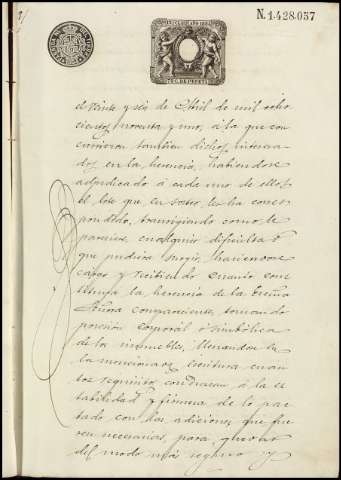 N. 1.428.057
el veinte y seis de Abril de mil ocho
cientos noventa y uno, á la que con
currieron tambien dichos interesa
dos en la herencia, habiendose
adjudicado á cada uno de ellos
el lote que, en haber, les ha corres
pondido, transigiendo como le
pareciera cualquier dificultad
que pudiera surgir, haciendose
cargo y recibiendo cuanto cons
tituya la herencia de la
Señora compareciente, tomando
posesion corporal ó simbólica
de los inmuebles, llenandose en
la mencionada escritura cuan
tos requisitos condujeran á la es
tabilidad y firmeza de lo pac
tado con las adiciones que fue
ren necesarias, para
del modo más seguro y